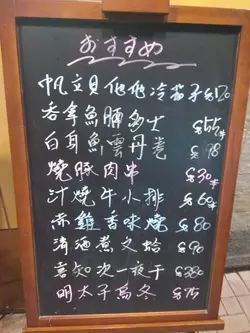 おすすめ
帆立貝他他冷茄子 $120
吞拿魚腩多士 $55
白身魚雲丹卷 $98
燒豚肉串 $30
汁燒牛小排 $60
赤雞香味燒 $80
清酒煮文蛤 $90
喜知次一夜干 $380
明太子烏冬 $75